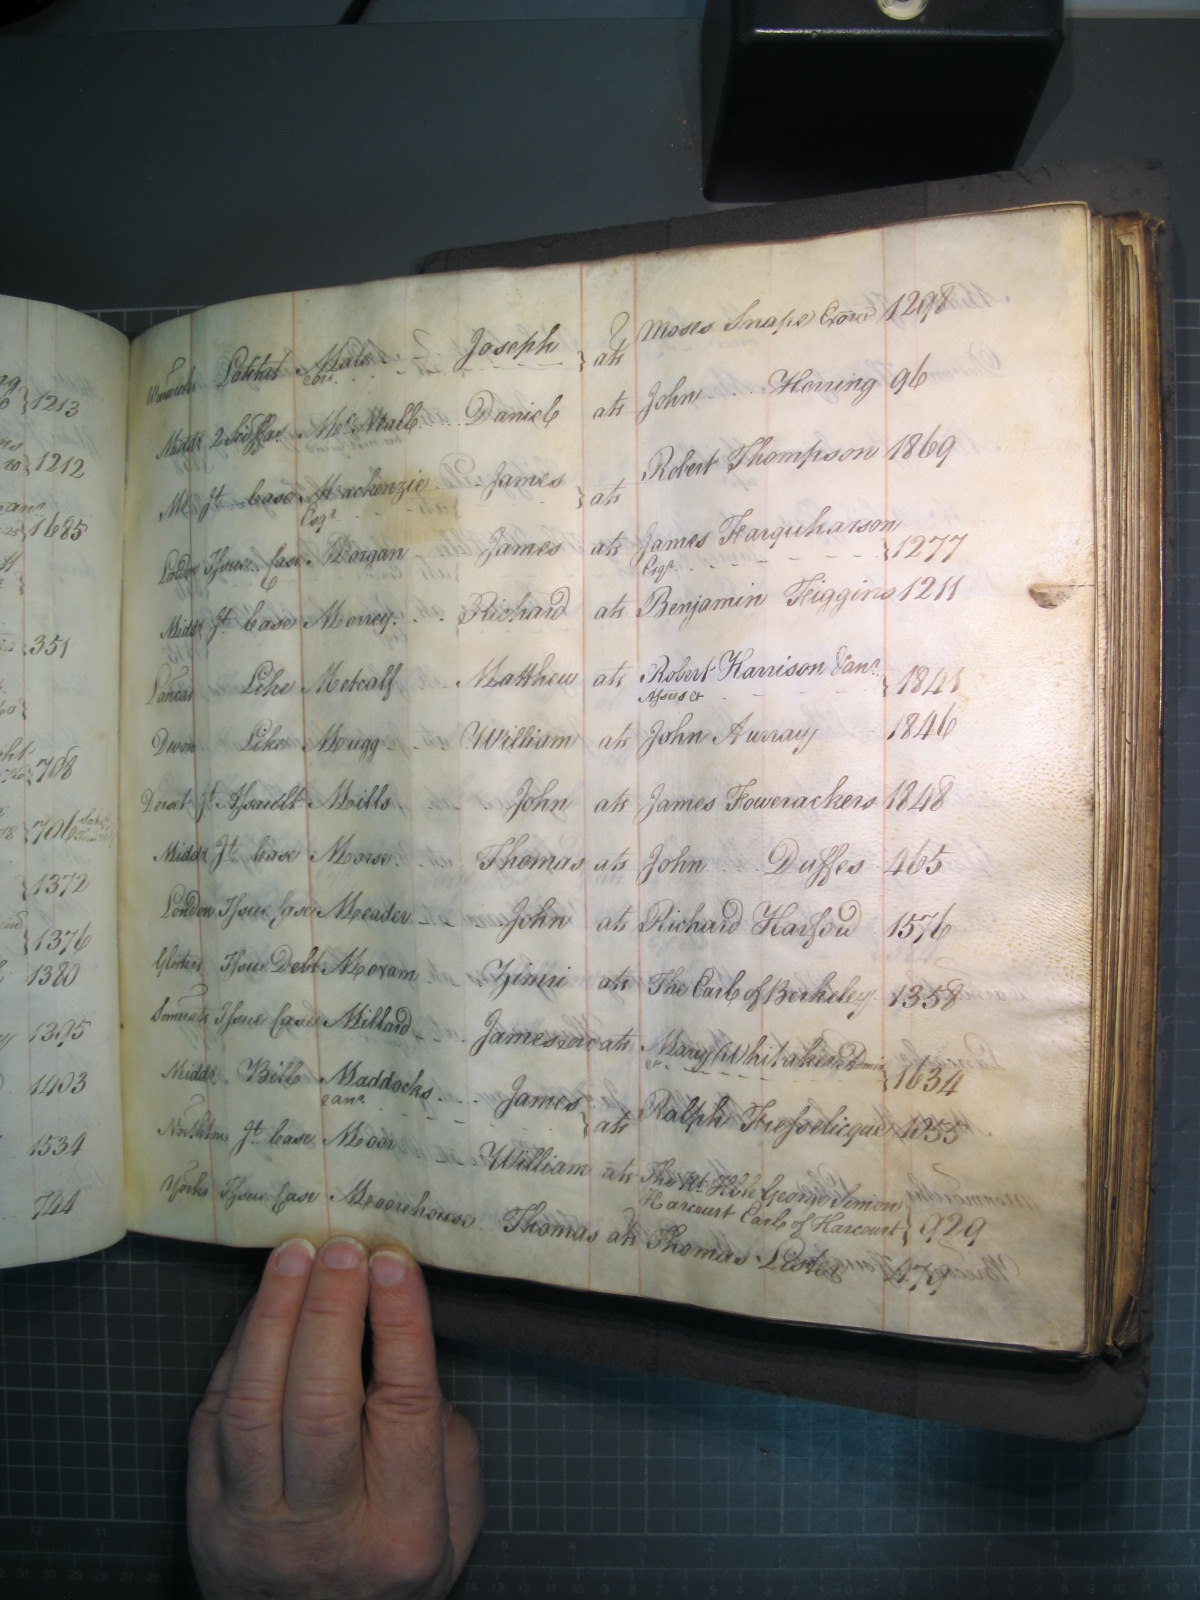 1213
1212
1685
351
708
706
1372
1376
1380
1395
1403
1534
744
Warwick Joseph ats Moses Snape Exor 1298
Middx 2 Daniel ats John Herring 96
Mx Jt Case Mackenzie James ats Robert Thompson 1869
Esqr
London Issue Case Morgan James ats James Farquharson 1277
Esqr
Middx Jt Case Morrey Richard ats Benjamin Figgins 1211
Lancas Like Metcalf Matthew ats Robert Harrison 1841
Devon Like Mugg William ats John Murray 1846
Dorset Jt Assault Mills John ats James Fowerackers 1848
Middx Jt Case Morse Thomas ats John Duffes 465
London Issue Case Meader John ats Richard 1576
Issue Debt Moxam ats The Earl of Berkeley 1358
Somerset Issue Case Millard James ats Mary Whitaker 1634
Middx Bill Maddocks James ats Ralph
Jt Case Moor William ats The Rt Hble George Simon
Harcourt Earl of Harcourt 929
Yorks Issue Case Moorhouse Thomas ats Thomas Lister